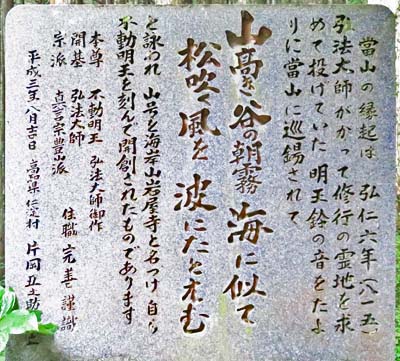 當山の縁起は 弘仁六年(八一五)
弘法大師がかつて修行の霊地を求
めて投げていた明王鈴の音をたよ
りに當山に巡錫されて
山高き谷の朝霧海に似て
松吹く風を波にたとえむ
と詠われ 山号を海岸山岩屋寺と名つけ 自ら
不動明王を刻んで開創されたものであります
本尊 不動明王 弘法大師御作
開基 弘法大師
宗派 真言宗豊山派 住職 完善 謹識
平成三年八月吉日 高知県仁淀村 片岡